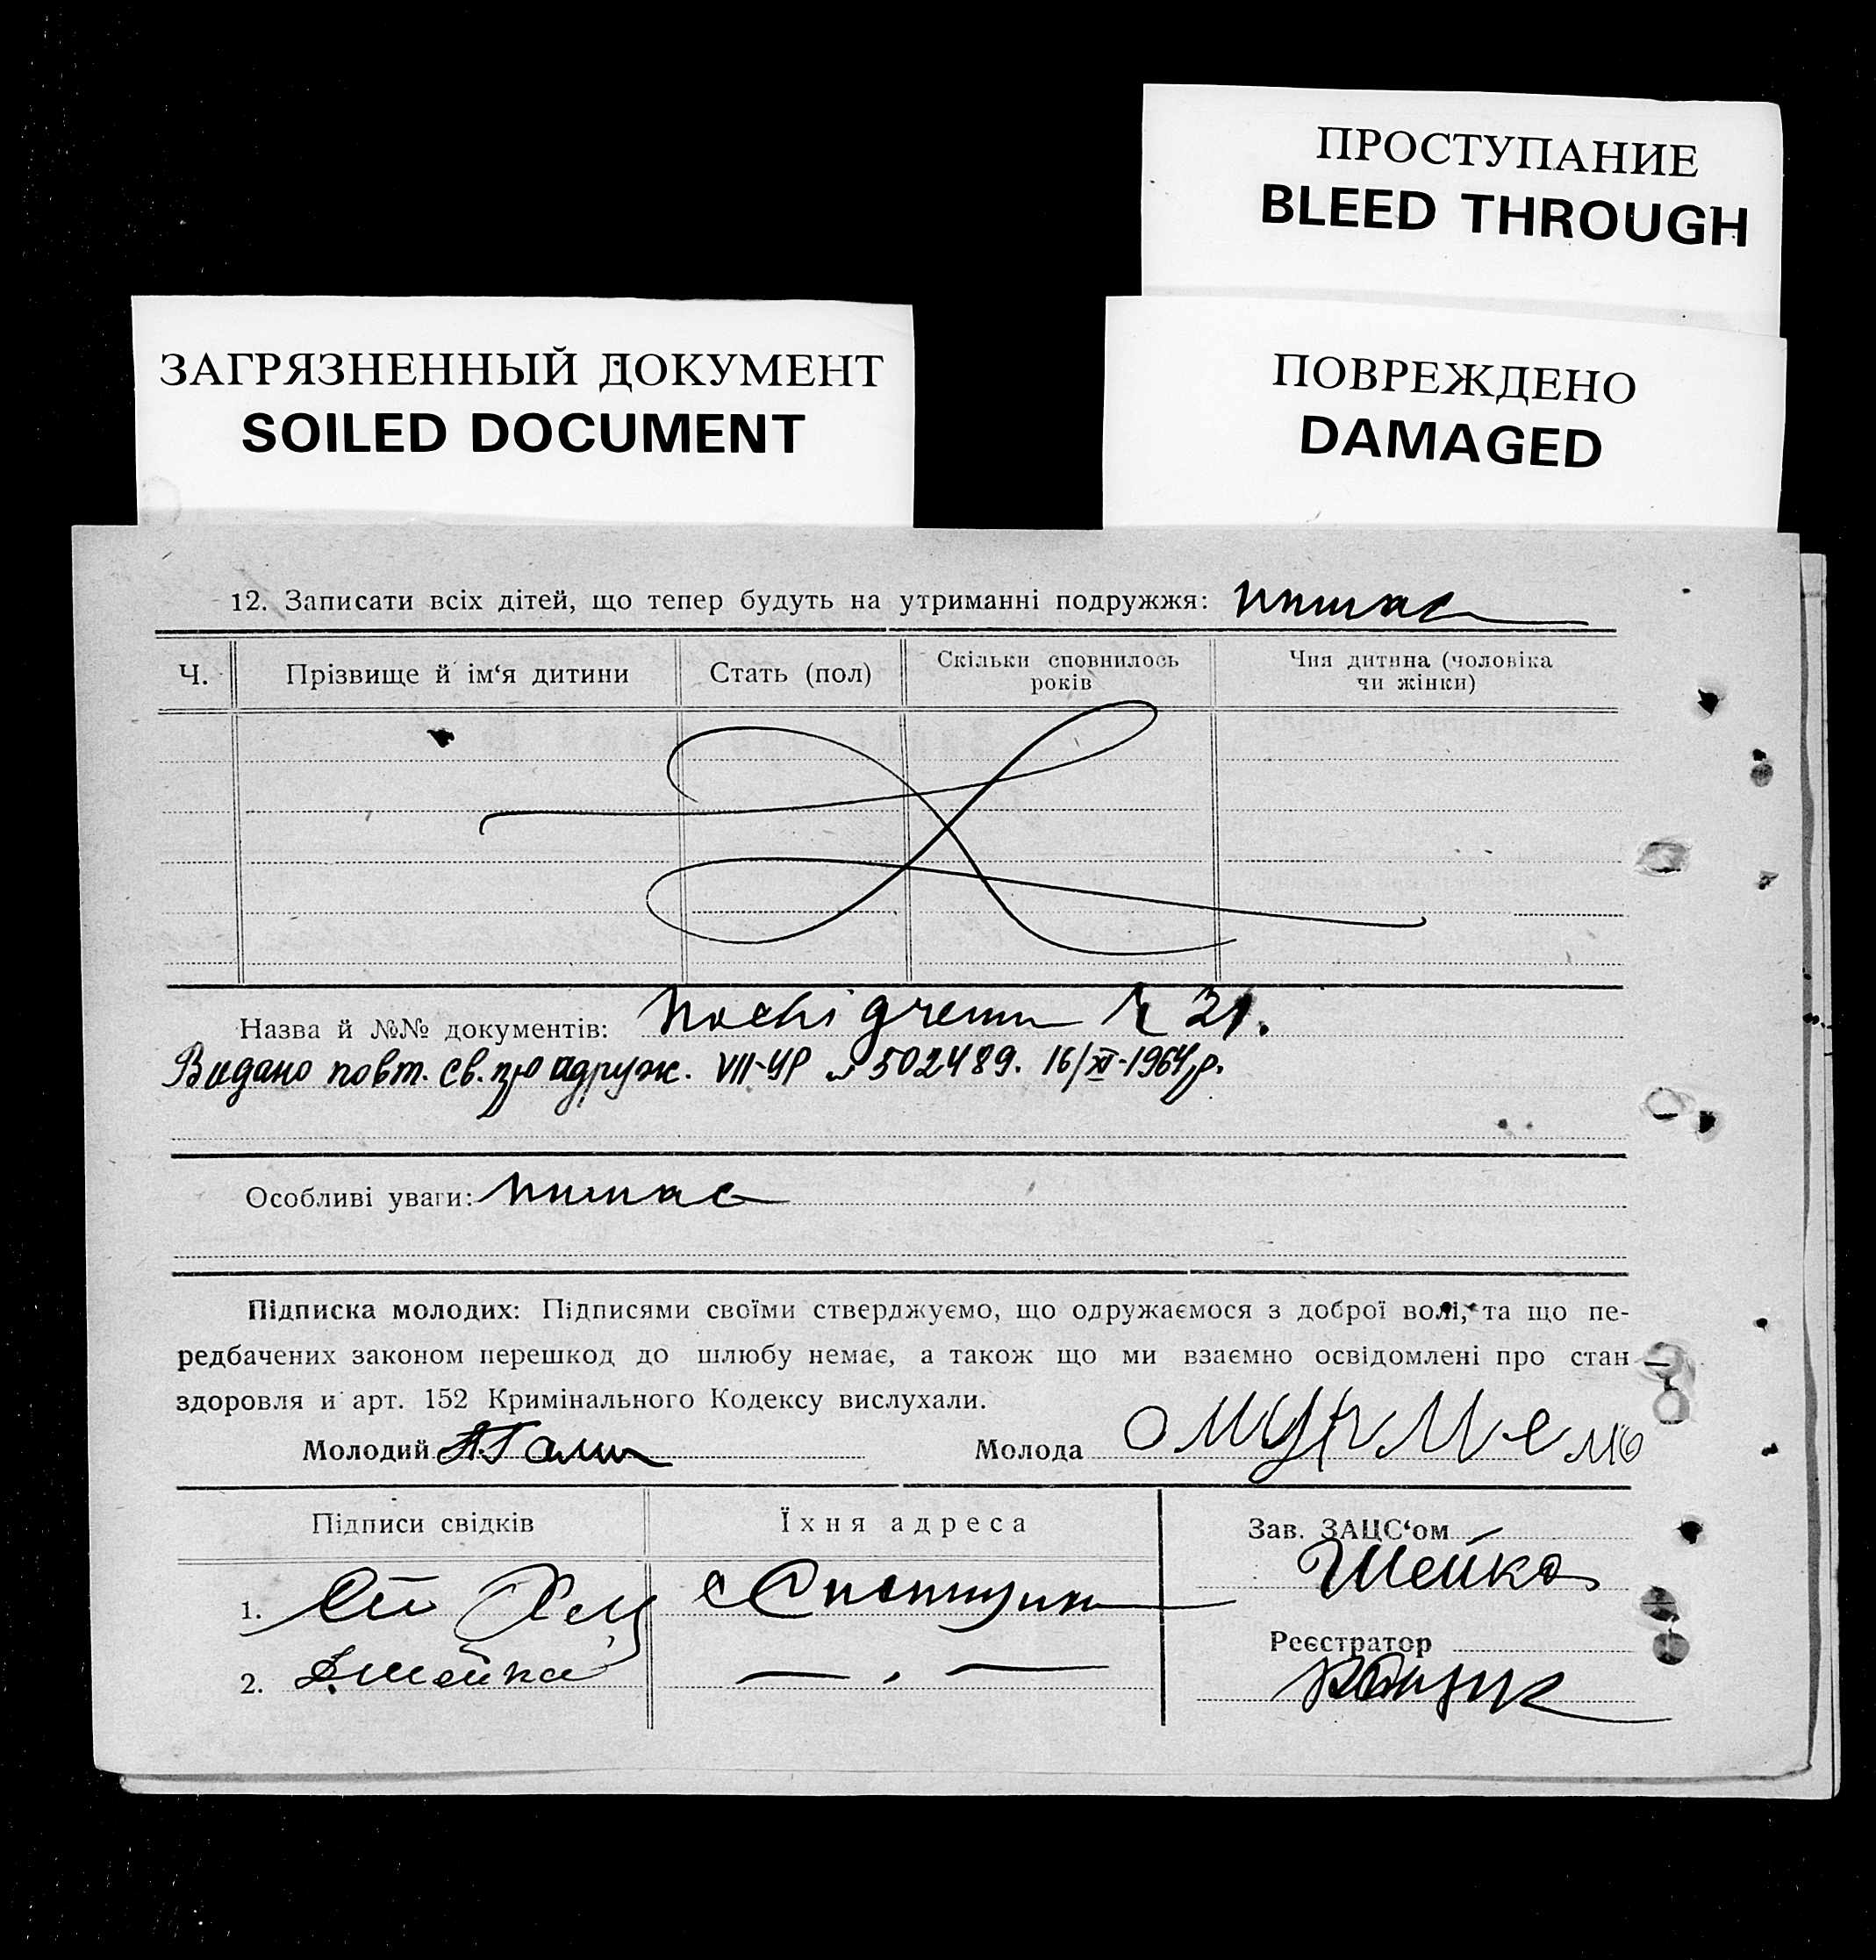 ПРОСТУПАНИЕ
BLEED THROUGH
ЗАГРЯЗНЕННЫЙ ДОКУМЕНТ
SOILED DOCUMENT
ПОВРЕЖДЕНО
DAMAGED
12. Записати всіх дітей, що тепер будуть на утриманні подружжя: немає
Ч. Прізвище й ім‘я дитини Стать (пол) Скільки сповнилось років Чия дитина (чоловіка чи жінки)
Назва й №№ документів: 31.
Видано повт. св. про одруж. VII-УР № 502489. 16/XI-1964 р.
Особливі уваги: немає
Підписка молодих: Підписями своїми стверджуємо, що одружаємося з доброї волі, та що пе-
редбачених законом перешкод до шлюбу немає, а також що ми взаємно освідомлені про стан
здоровля и арт. 152 Кримінального Кодексу вислухали.
Молодий Молода
Підписи свідків Їхня адреса Зав. ЗАЦС‘ом
Шейко
1.
Реєстратор
2.